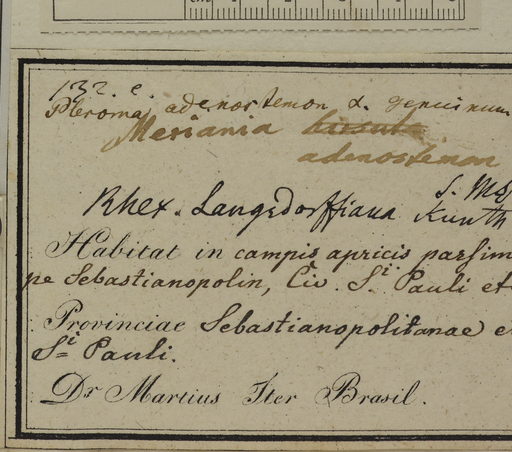 cm 1 2 3 4 5
132. e.
Pleroma adenostemon α. genuinum
Meriania hirsuta
adenostemon
Rhex. Langsdorffiana Kunth
Habitat in campis apricis passim
pe Sebastianopolin, Civ. S.i Pauli et
Provinciae Sebastianopolitanae e
S.i Pauli.
Dr Martius Iter Brasil.